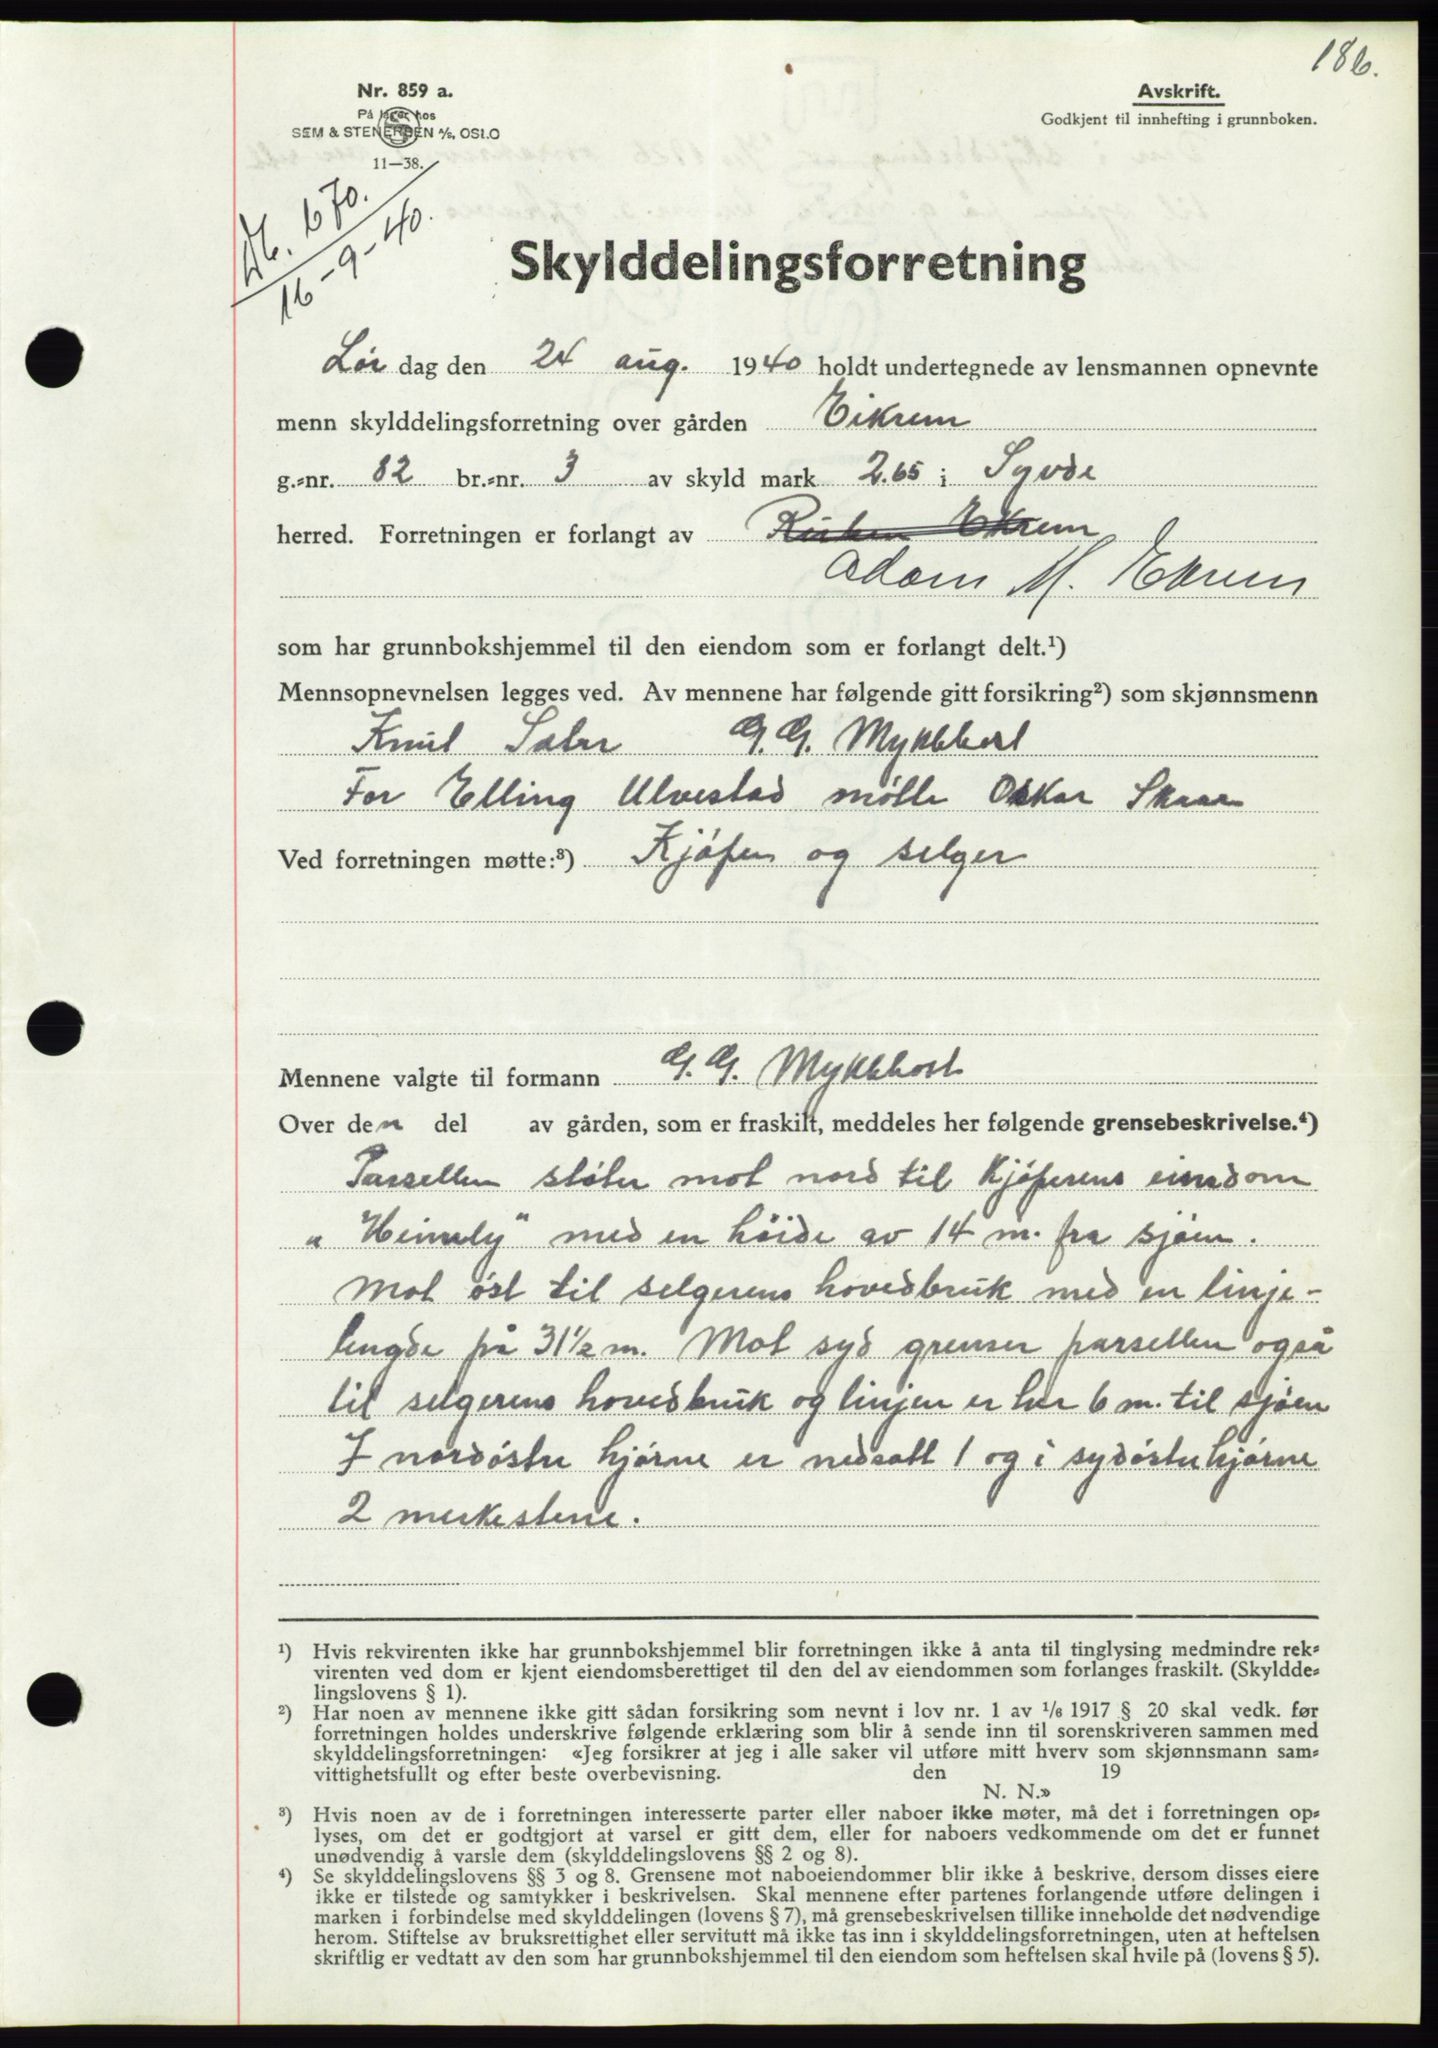 186.
Nr. 859 a.
På lager hos
SEM & STENERSEN A/S, OSLO
11—38.
Avskrift.
Godkjent til innhefting i grunnboken.
670.
16-9-40.
Skylddelingsforretning
Lør dag den 24 aug. 1940 holdt undertegnede av lensmannen opnevnte
menn skylddelingsforretning over gården Eikrem
g.=nr. 82 br.=nr. 3 av skyld mark 2.65 i Syvde
herred. Forretningen er forlangt av Ekrem
Adam M. Ekrem
som har grunnbokshjemmel til den eiendom som er forlangt delt.¹)
Mennsopnevnelsen legges ved. Av mennene har følgende gitt forsikring²) som skjønnsmenn
Knut G. G. Myklebost
For Elling Ulvestad møtte Oskar
Ved forretningen møtte:³) Kjøper og selger
Mennene valgte til formann G. G. Myklebost
Over den del av gården, som er fraskilt, meddeles her følgende grensebeskrivelse.⁴)
Parsellen støter mot nord til Kjøperens eiendom
"Heimly" med en høide av 14 m. fra sjøen.
Mot øst til selgerens hovedbruk med en linje-
lengde på 31½ m. Mot syd grenser parsellen også
til selgerens hovedbruk og linjen er her 6 m. til sjøen
I nordøstre hjørne er nedsatt 1 og i sydøstre hjørne
2 merkestene.
¹) Hvis rekvirenten ikke har grunnbokshjemmel blir forretningen ikke å anta til tinglysing medmindre rek=
virenten ved dom er kjent eiendomsberettiget til den del av eiendommen som forlanges fraskilt. (Skyldde=
lingslovens § 1).
²) Har noen av mennene ikke gitt sådan forsikring som nevnt i lov nr. 1 av 1/6 1917 § 20 skal vedk. før
forretningen holdes underskrive følgende erklæring som blir å sende inn til sorenskriveren sammen med
skylddelingsforretningen: «Jeg forsikrer at jeg i alle saker vil utføre mitt hverv som skjønnsmann sam=
vittighetsfullt og efter beste overbevisning. den 19
N. N.»
³) Hvis noen av de i forretningen interesserte parter eller naboer ikke møter, må det i forretningen op=
lyses, om det er godtgjort at varsel er gitt dem, eller for naboers vedkommende om det er funnet
unødvendig å varsle dem (skylddelingslovens §§ 2 og 8).
⁴) Se skylddelingslovens §§ 3 og 8. Grensene mot naboeiendommer blir ikke å beskrive, dersom disses eiere
ikke er tilstede og samtykker i beskrivelsen. Skal mennene efter partenes forlangende utføre delingen i
marken i forbindelse med skylddelingen (lovens § 7), må grensebeskrivelsen tillike inneholde det nødvendige
herom. Stiftelse av bruksrettighet eller servitutt må ikke tas inn i skylddelingsforretningen, uten at heftelsen
skriftlig er vedtatt av den som har grunnbokshjemmel til den eiendom som heftelsen skal hvile på (lovens § 5).